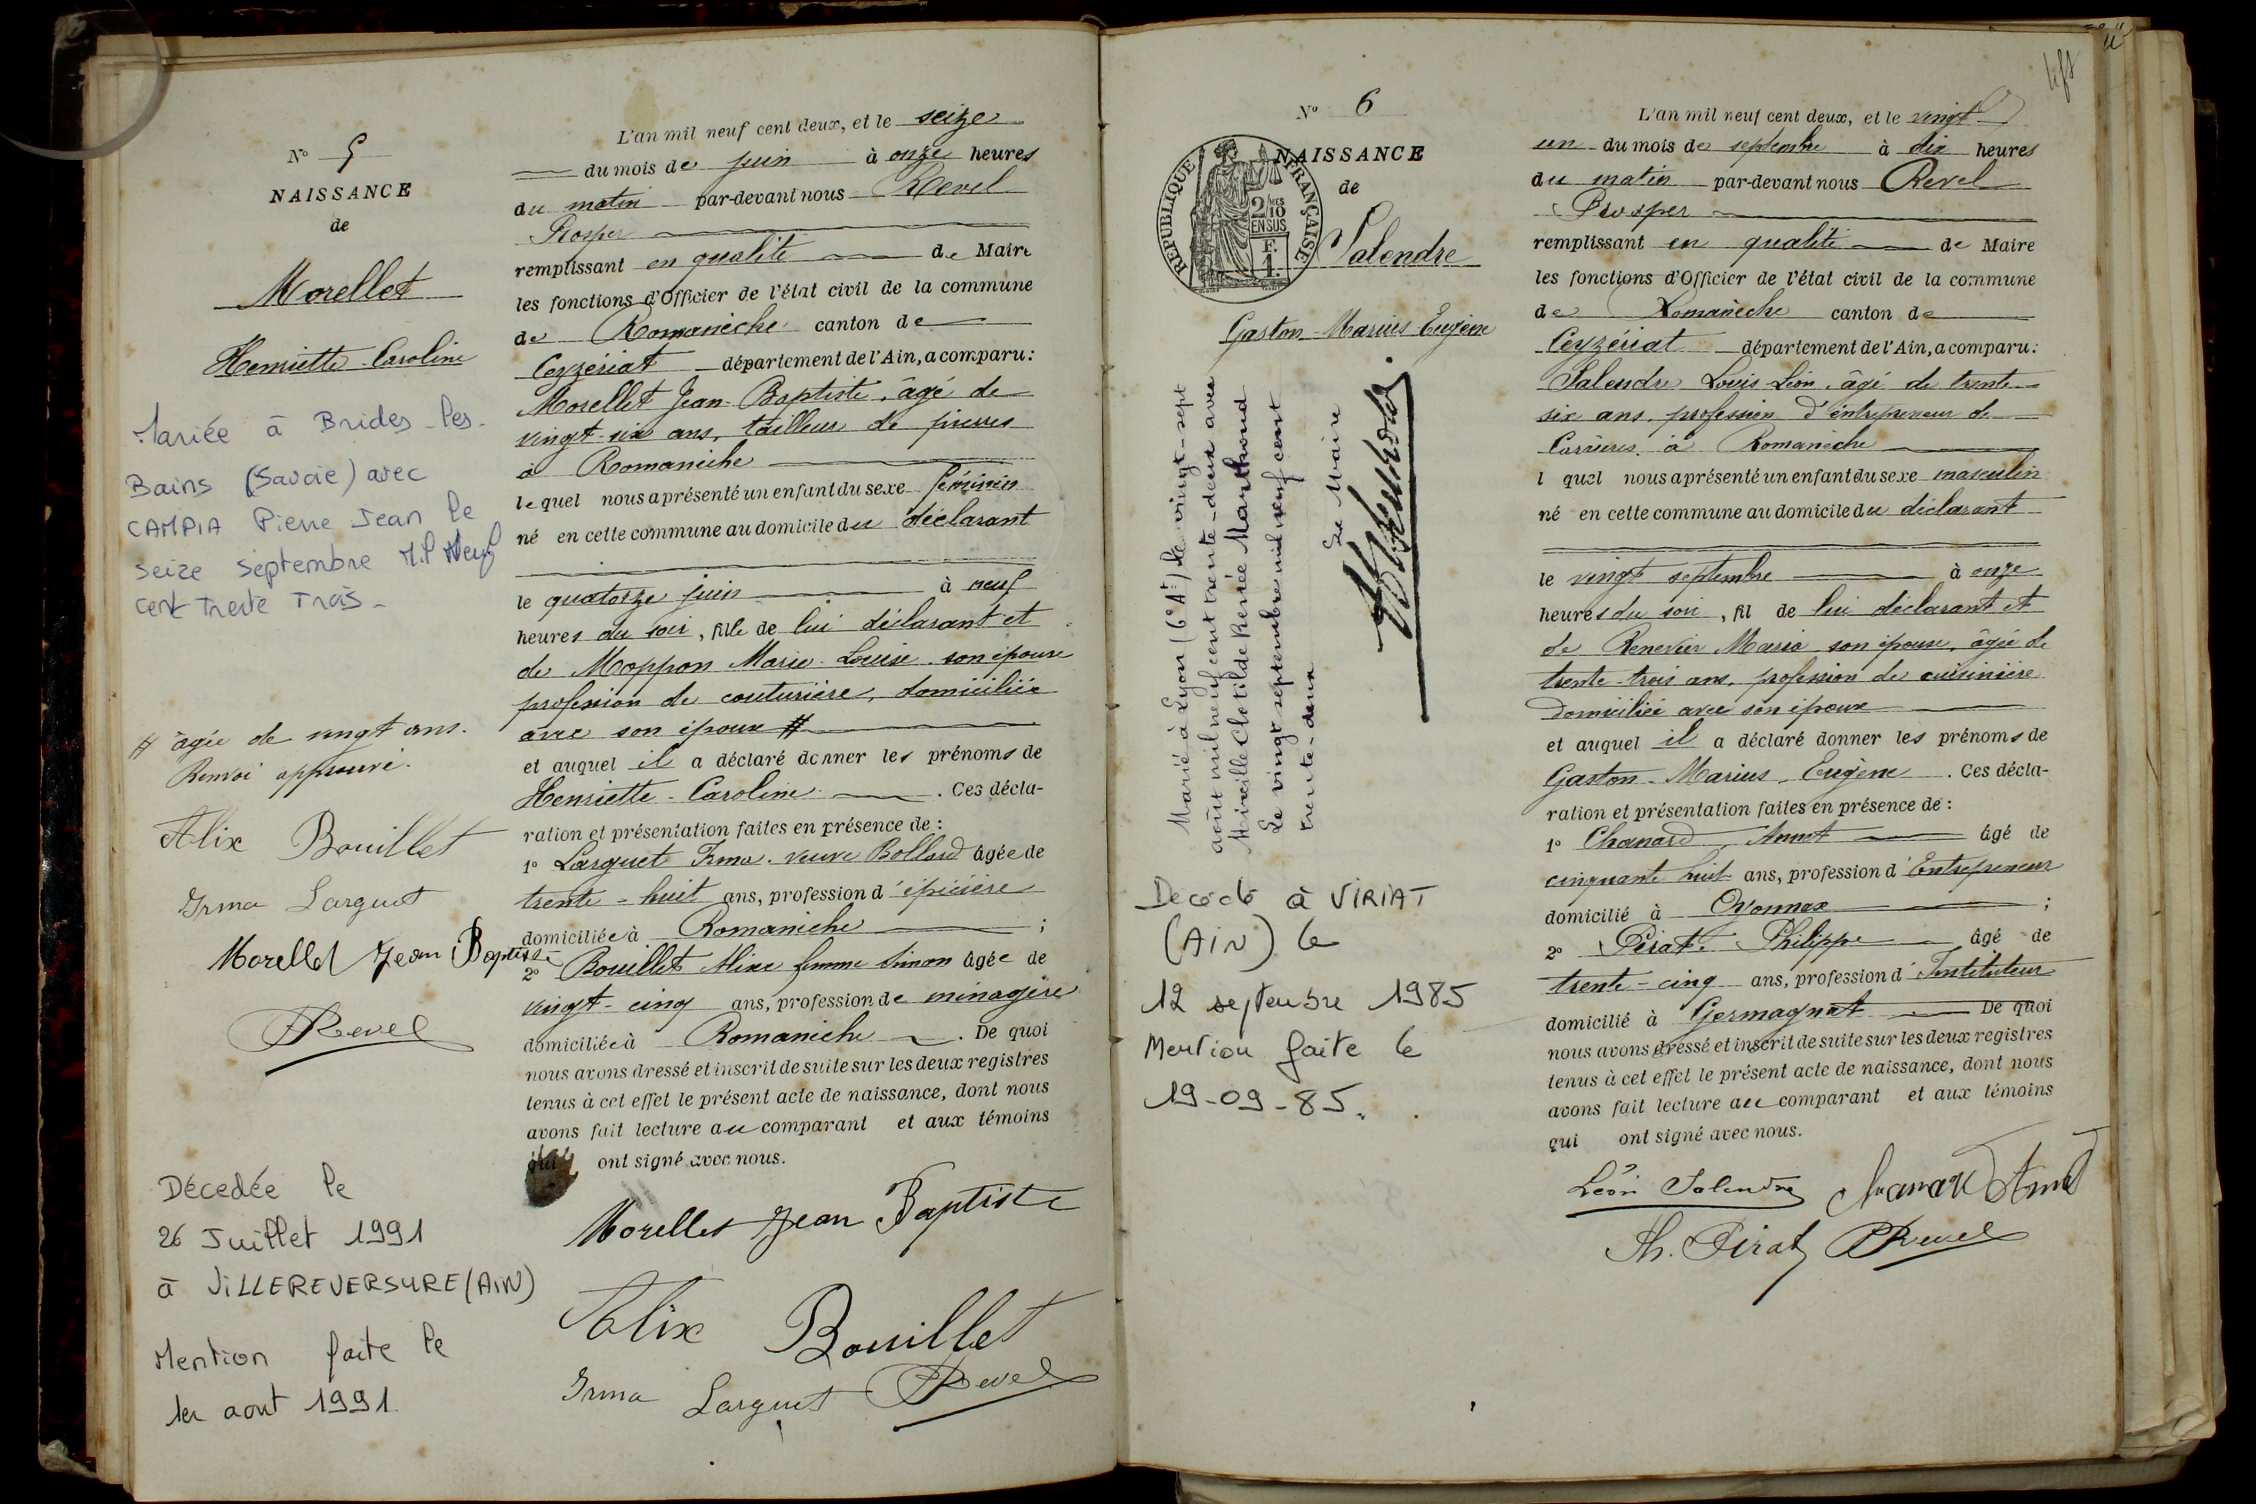 Nº 5
NAISSANCE
de
Morellet
Henriette-Caroline
Mariée à Brides-les-
Bains (Savoie) avec
CAMPIA Pierre Jean le
seize septembre Mil Neuf
cent Trente Trois_
# âgée de vingt ans.
Renvoi approuvé.
Alix Bouillet
Irma Larguet
Morellet Jean Baptiste
PRevel
Décédée le
26 Juillet 1991
à VILLEREVERSURE (AIN)
Mention faite le
1er aout 1991
L'an mil neuf cent deux, et le seize
du mois de juin à onze heures
du matin par-devant nous Revel
Prosper
remplissant en qualité de Maire
les fonctions d'Officier de l'état civil de la commune
de Romanèche canton de
Ceyzériat département de l'Ain, a comparu:
Morellet Jean-Baptiste, âgé de
vingt-six ans, tailleur de pierres
à Romanèche
lequel nous a présenté un enfant du sexe féminin
né en cette commune au domicile du déclarant
le quatorze juin à neuf
heures du soir, fille de lui déclarant et
de Moppon Marie-Louise son épouse
profession de couturière, domiciliée
avec son époux #
et auquel il a déclaré donner les prénoms de
Henriette-Caroline. Ces décla-
ration et présentation faites en présence de:
1º Larguet Irma. veuve Bollard âgée de
trente-huit ans, profession d'épicière
domiciliée à Romanèche;
2º Bouillet Alixe femme Simon âgée de
vingt-cinq ans, profession de ménagère
domiciliée à Romanèche. De quoi
nous avons dressé et inscrit de suite sur les deux registres
tenus à cet effet le présent acte de naissance, dont nous
avons fait lecture au comparant et aux témoins
qui ont signé avec nous.
Morellet Jean Baptiste
Alix Bouillet
Irma Larguet PRevel
Nº 6
NAISSANCE
de
REPUBLIQUE FRANÇAISE
2/10 EN SUS
F. 1.
Salendre
Gaston-Marius-Eugène
Marié à Lyon (6e At) le vingt-sept
août mil neuf cent trente-deux avec
Mireille Clotilde Renée Marthoud
Le vingt septembre mil neuf cent
trente-deux
Le Maire
Décédé à VIRIAT
(AIN) le
12 septembre 1985
Mention faite le
19-09-85.
L'an mil neuf cent deux, et le vingt
un du mois de septembre à dix heures
du matin par-devant nous Revel
Prosper
remplissant en qualité de Maire
les fonctions d'Officier de l'état civil de la commune
de Romanèche canton de
Ceyzériat département de l'Ain, a comparu:
Salendre Louis-Léon, âgé de trente
six ans, profession d'entrepreneur de
Carrières, à Romanèche
lquel nous a présenté un enfant du sexe masculin
né en cette commune au domicile du déclarant
le vingt septembre à onze
heures du soir, fil de lui déclarant et
de Renevier Maria son épouse, âgée de
trente-trois ans, profession de cuisinière
domiciliée avec son époux
et auquel il a déclaré donner les prénoms de
Gaston-Marius-Eugène. Ces décla-
ration et présentation faites en présence de:
1º Chanard, Annet âgé de
cinquante huit ans, profession d'Entrepreneur
domicilié à Oyonnax;
2º Pirat Philippe âgé de
trente-cinq ans, profession d'Instituteur
domicilié à Germagnat De quoi
nous avons dressé et inscrit de suite sur les deux registres
tenus à cet effet le présent acte de naissance, dont nous
avons fait lecture au comparant et aux témoins
qui ont signé avec nous.
Léon Salendre Chanard Annet
Ph. Pirat PRevel